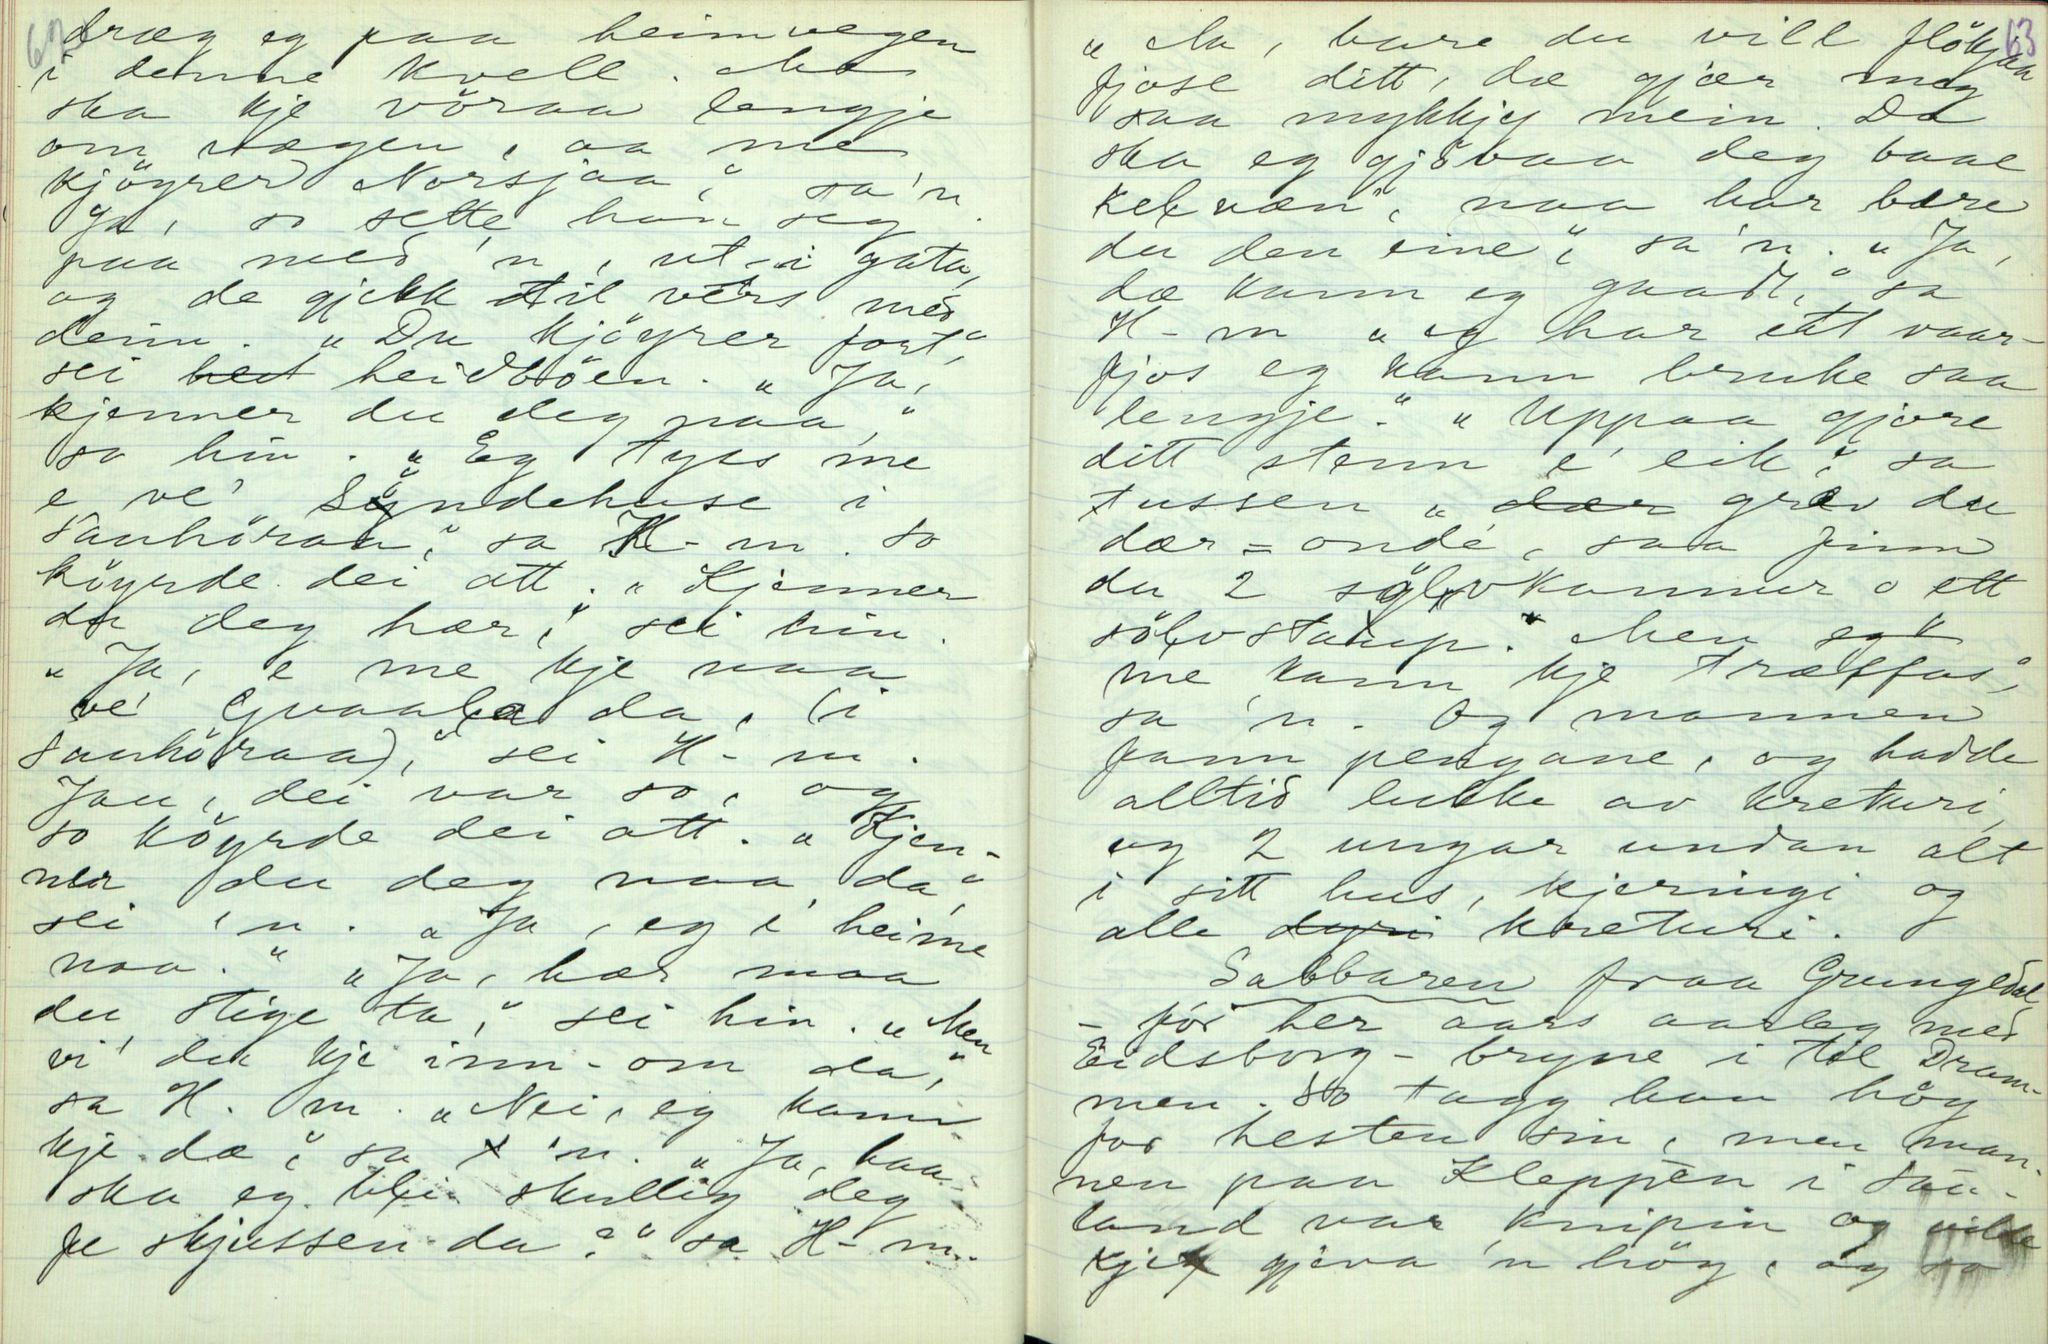 62
dræg eg paa heimvegen
i denne kvell. Me
ska kje vöraa lengje
om vægen, aa me
kjöyrer Norsjaa," sa 'n.
Ja, so sette han seg
paa med 'n, ut-i gata,
og de gjekk til vers med
deim. "Du kjöyrer fort,"
sei heidböen. "Ja,
kjenner du deg paa,"
sa hin. "Eg tyss me
e ve' Söndehuse i
Sauhöraa," sa H-m. So
köyrde dei att. "Kjenner
du deg hær," sei hin.
"Ja, e me kje naa
ve' Gvaala da, (i
Sauhöraa)," sei H-m.
Jau, dei var so, og
so köyrde dei att. "Kjen-
ner du deg naa da,"
sei 'n. "Ja, eg e' heime
naa." "Ja, hær maa
du stige ta," sei hin. "Men
vi' du kje inn-om da,"
sa H. m. "Nei, eg kann
kje dæ," sa 'n. "Ja, haa
ska eg bli skuldig deg
fe skjussen da?" sa H-m.
63
"Aa, bare du vill flökjaa
fjose ditt, dæ gjær meg
saa mykkjy mein. Da
ska eg gjövaa deg baae
kelvæn", naa har bære
du den eine", sa 'n. "Ja,
dæ kann eg gaadt," sa
H-m "eg har ett vaar-
fjos eg kann bruke saa
lengje." "Uppaa gjore
ditt stenn e' eik", sa
tussen "dær grev du
dær-onde, saa finn
du 2 sölvkannur o ett
sölvstaup." Men eg"
me kann kje træffas,"
sa 'n. Og mannen
fann pengane, og hadde
alltid lukke av kreturi,
og 2 ungar undan alt
i sitt hus, kjeringi og
alle dyri kreturi.
Sabbaren fraa Grungedal
- fór her aars aarleg med
Eidsborg-bryne i til Dram-
men. So tagg han höy
for hesten sin, men man-
nen paa Kleppen i Sau-
land var knipin og vilde
kje gjeva 'n höy, og so